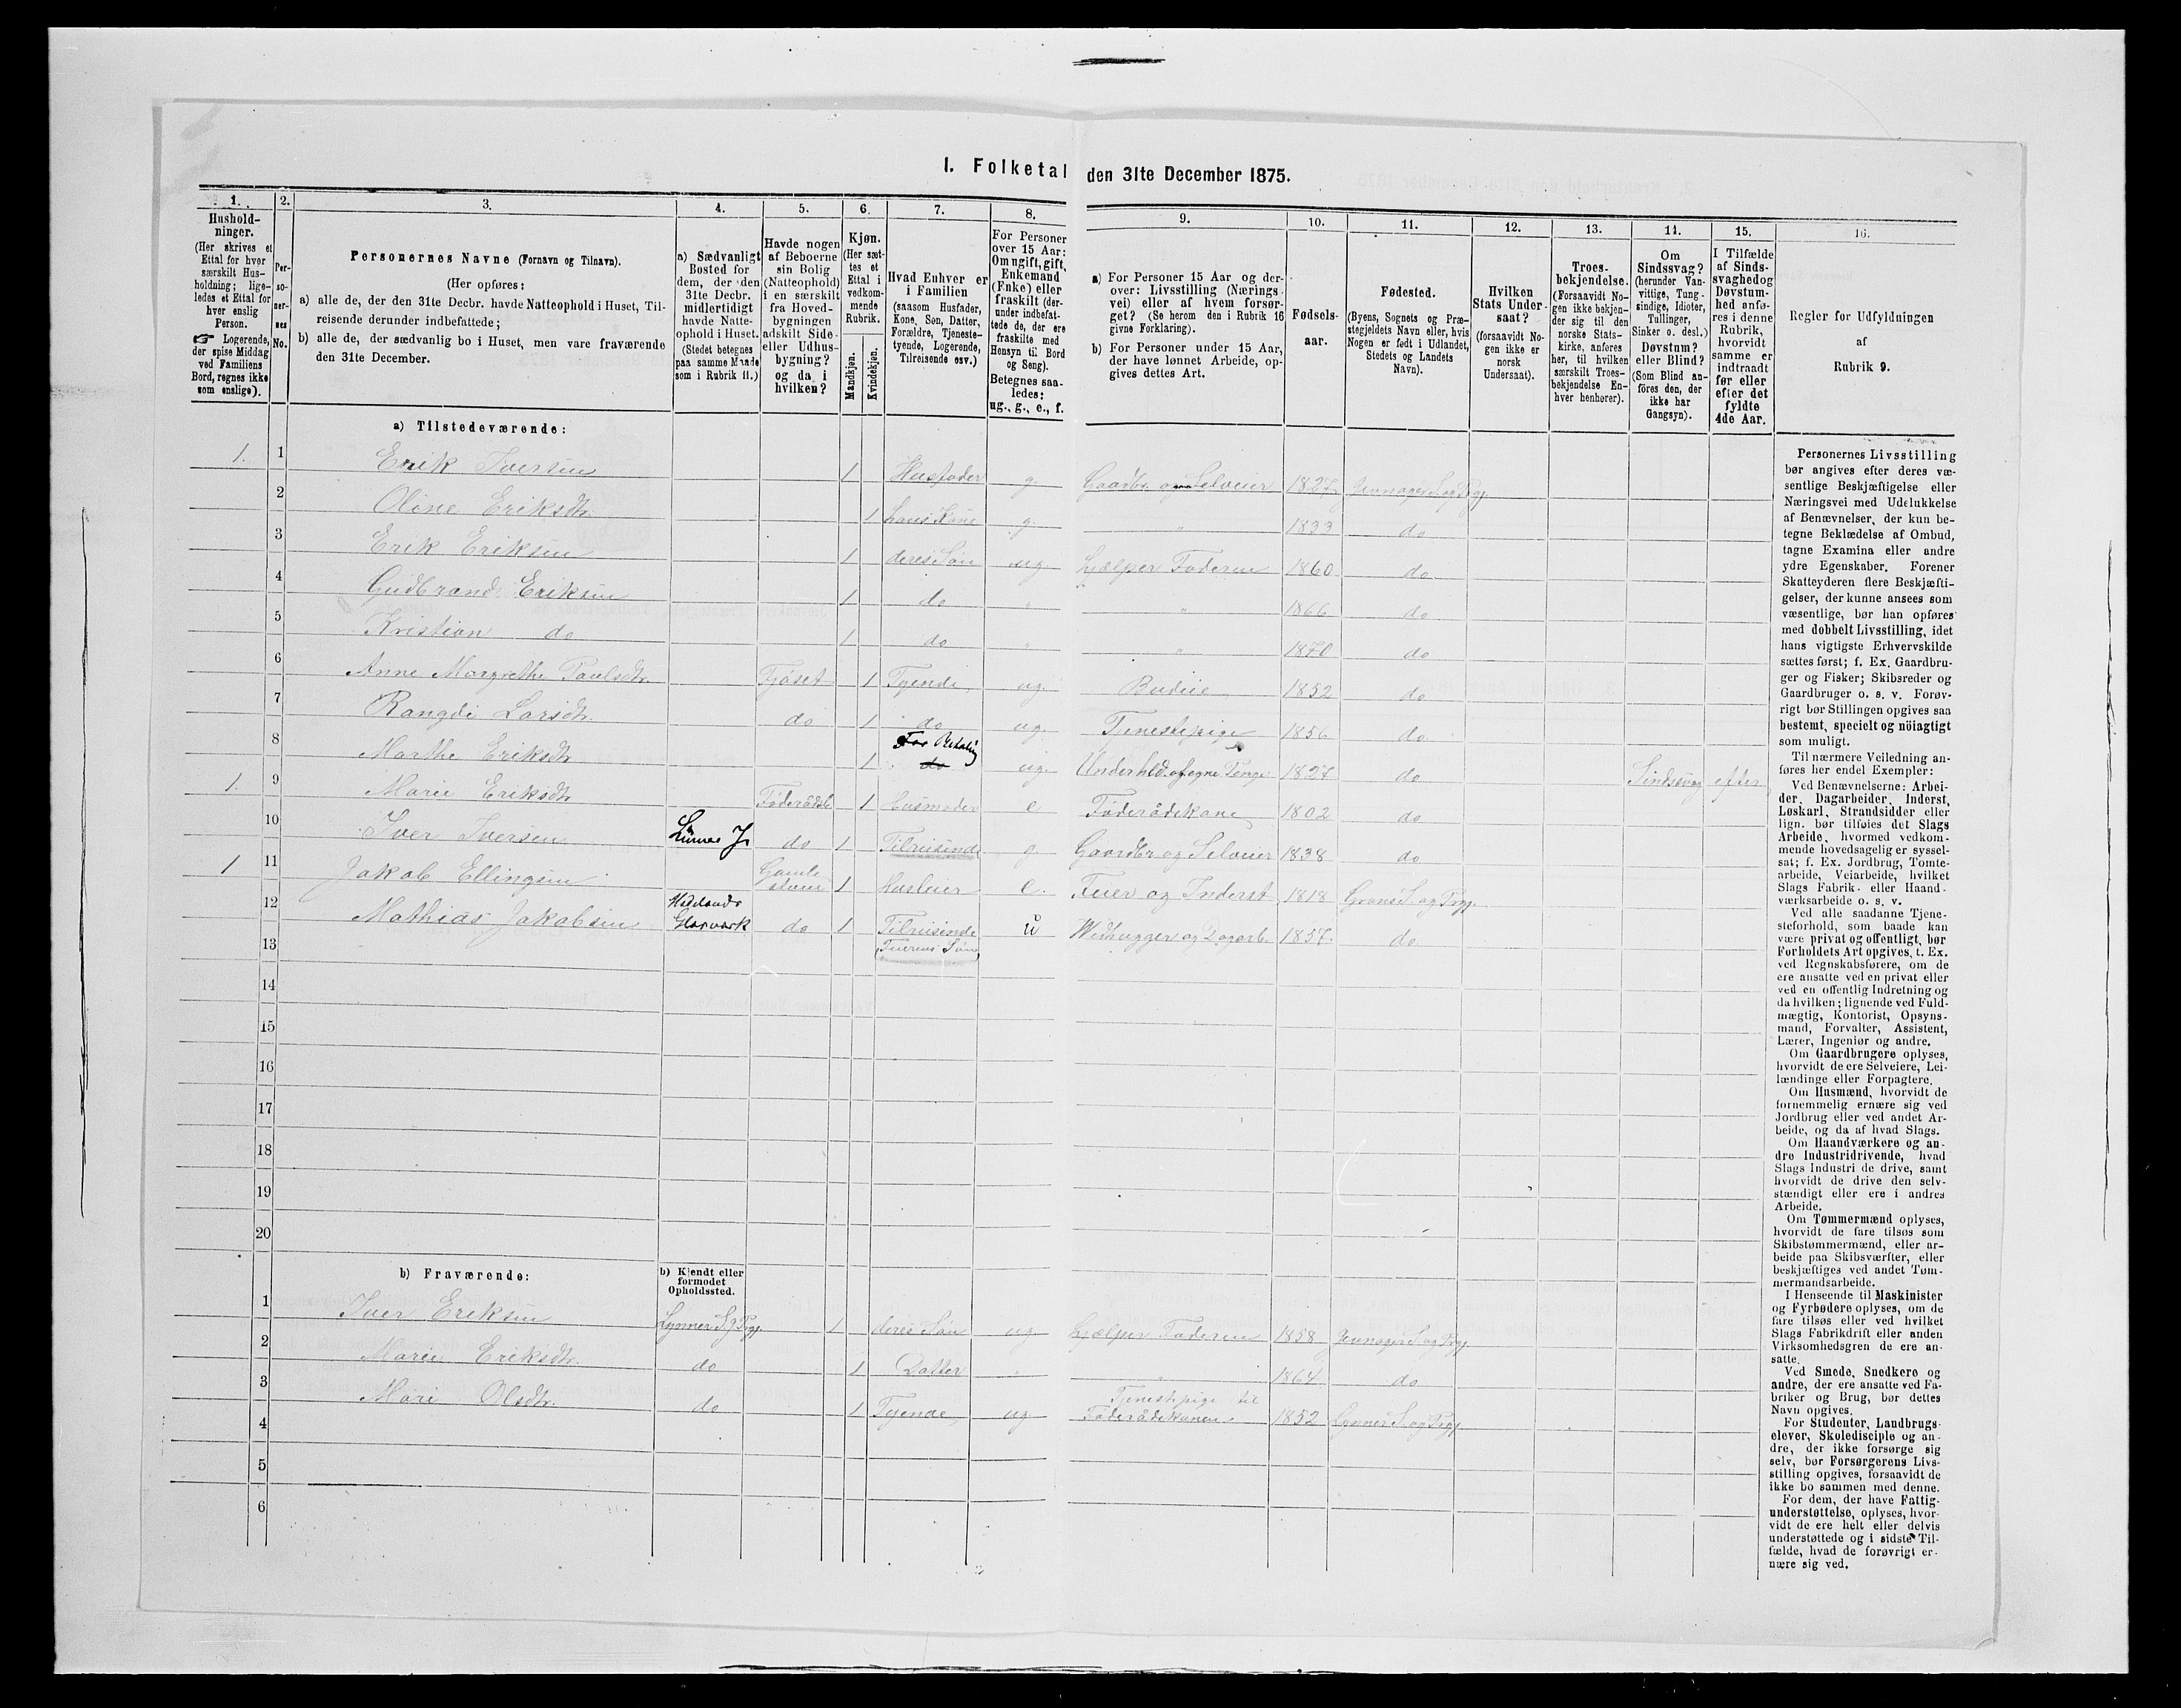 I. Folketal den 31te December 1875.
1. 2. 3. 4. 5. 6. 7. 8. 9. 10. 11. 12. 13. 14. 15. 16.
Hushold-
ninger.
(Her skrives et
Ettal for hver
særskilt Hus-
holdning; lige-
ledes et Ettal for
hver enslig
Person.
☞ Logerende,
der spise Middag
ved Familiens
Bord, regnes ikke
som enslige).
Per-
so-
ner-
nes
No.
Personernes Navne (Fornavn og Tilnavn).
(Her opføres:
a) alle de, der den 31te Decbr. havde Natteophold i Huset, Til-
reisende derunder indbefattede;
b) alle de, der sædvanlig bo i Huset, men vare fraværende
den 31te December.
a) Sædvanligt
Bosted for
dem, der den
31te Decbr.
midlertidigt
havde Natte-
ophold i Huset.
(Stedet betegnes
paa samme Maade
som i Rubrik 11.)
Havde nogen
af Beboerne
sin Bolig
(Natteophold)
i en særskilt
fra Hoved-
bygningen
adskilt Side-
eller Udhus-
bygning?
og da i
hvilken?
Kjøn.
(Her sæt-
tes et
Ettal i
vedkom-
mende
Rubrik.
Mandkjøn.
Kvindekjøn.
Hvad Enhver er
i Familien
(saasom Husfader,
Kone, Søn, Datter,
Forældre, Tjeneste-
tyende, Logerende,
Tilreisende osv.)
For Personer
over 15 Aar:
Om ugift, gift,
Enkemand
(Enke) eller
fraskilt (der-
under indbefat-
tede de, der ere
fraskilte med
Hensyn til Bord
og Seng).
Betegnes saa-
ledes:
ug., g., e., f.
a) For Personer 15 Aar og der-
over: Livsstilling (Nærings-
vei) eller af hvem forsør-
get? (Se herom den i Rubrik 16
givne Forklaring).
b) For Personer under 15 Aar,
der have lønnet Arbeide, op-
gives dettes Art.
Fødsels-
aar.
Fødested.
(Byens, Sognets og Præ-
stegjeldets Navn eller, hvis
Nogen er født i Udlandet,
Stedets og Landets
Navn).
Hvilken
Stats Under-
saat?
(forsaavidt No-
gen ikke er
norsk
Undersaat).
Troes-
bekjendelse.
(Forsaavidt No-
gen ikke bekjen-
der sig til den
norske Stats-
kirke, anføres
her, til hvilken
særskilt Troes-
bekjendelse En-
hver henhører).
Om
Sindssvag?
(herunder Van-
vittige, Tung-
sindige, Idioter,
Tullinger,
Sinker o. desl.)
Døvstum?
eller Blind?
(Som Blind an-
føres den, der
ikke har
Gangsyn).
I Tilfælde
af Sinds-
svaghed og
Døvstum-
hed anfø-
res i denne
Rubrik,
hvorvidt
samme er
indtraadt
før eller
efter det
fyldte
4de Aar.
Regler for Udfyldningen
af
Rubrik 9.
a) Tilstedeværende:
1. 1 Erik Iversen 1 Husfader g. Gaardbr. og Selveier 1827 Jevnager S. og Prgj.
2 Oline Eriksdtr. 1 hans Kone g. " 1833 do
3 Erik Eriksen 1 deres Søn ug. hjælper Faderen 1860 do
4 Gudbrand Eriksen 1 do " " 1866 do
5 Kristian do 1 do " " 1870 do
6 Anne Margrethe Paulsdtr. Fjøset 1 Tyende ug. Budeie 1852 do
7 Rangdi Larsdtr. do 1 do ug. Tjenestepige 1856 do
8 Marthe Eriksdtr. 1 do For Betaling ug. Underhld. af egne Penge 1827 do Sindssvag efter
1. 9 Marie Eriksdtr. 1 Husmoder e Føderådskone 1802 do
10 Iver Iversen do 1 Tilreisende g. Gaardbr og Selveier 1838 do
1 11 Jakob Ellingsen Gamle 1 Husleier e. og Inderst 1818 Grans S. og Prgj.
12 Mathias Jakobsen Hadelands Glasværk do 1 Tilreisende u Vedhugger og Dagarb. 1857 do
13 Søn
14
15
16
17
18
19
20
b) Fraværende: b) Kjendt eller
formodet
Opholdssted.
1 Iver Eriksen Lynner S. og Prgj. 1 deres Søn ug hjælper Faderen 1858 Jevnager S. og Prgj.
2 Marie Eriksdtr. do 1 Datter " " 1864 do
3 Mari Olsdtr. do 1 Tyende ug Tjenestepige til
Føderådskonen 1852 Lynner S. og Prgj.
4
5
6
Personernes Livsstilling
bør angives efter deres væ-
sentlige Beskjæftigelse eller
Næringsvei med Udelukkelse
af Benævnelser, der kun be-
tegne Beklædelse af Ombud,
tagne Examina eller andre
ydre Egenskaber. Forener
Skatteyderen flere Beskjæfti-
gelser, der kunne ansees som
væsentlige, bør han opføres
med dobbelt Livsstilling, idet
hans vigtigste Erhvervskilde
sættes først; f. Ex. Gaardbru-
ger og Fisker; Skibsreder og
Gaardbruger o. s. v. Forøv-
rigt bør Stillingen opgives saa
bestemt, specielt og nöiagtigt
som muligt.
Til nærmere Veiledning an-
føres her endel Exempler:
Ved Benævnelserne: Arbei-
der, Dagarbeider, Inderst,
Løskarl, Strandsidder eller
lign. bør tilføies det Slags
Arbeide, hvormed vedkom-
mende hovedsagelig er syssel-
sat; f. Ex. Jordbrug, Tomte-
arbeide, Veiarbeide, hvilket
Slags Fabrik- eller Haand-
værksarbeide o. s. v.
Ved alle saadanne Tjene-
steforhold, som baade kan
være privat og offentligt, bør
Forholdets Art opgives, t. Ex.
ved Regnskabsførere, om de
ere ansatte ved en privat eller
ved en offentlig Indretning og
da hvilken; lignende ved Fuld-
mægtig, Kontorist, Opsyns-
mand, Forvalter, Assistent,
Lærer, Ingeniør og andre.
Om Gaardbrugere oplyses,
hvorvidt de ere Selveiere, Lei-
lændinge eller Forpagtere.
Om Husmænd, hvorvidt de
fornemmelig ernære sig ved
Jordbrug eller ved andet Ar-
beide, og da af hvad Slags.
Om Haandværkere og an-
dre Industridrivende, hvad
Slags Industri de drive, samt
hvorvidt de drive den selv-
stændigt eller ere i andres
Arbeide.
Om Tømmermænd oplyses,
hvorvidt de fare tilsøs som
Skibstømmermænd, eller ar-
beide paa Skibsværfter, eller
beskjæftiges ved andet Tøm-
mermandsarbeide.
I Henseende til Maskinister
og Fyrbødere oplyses, om de
fare tilsøs eller ved hvilket
Slags Fabrikdrift eller anden
Virksomhedsgren de ere an-
satte.
Ved Smede, Snedkere og
andre, der ere ansatte ved Fa-
briker og Brug, bør dettes
Navn opgives.
For Studenter, Landbrugs-
elever, Skoledisciple og an-
dre, der ikke forsørge sig
selv, bør Forsørgerens Livs-
stilling opgives, forsaavidt de
ikke bo sammen med denne.
For dem, der have Fattig-
understøttelse, oplyses, hvor-
vidt de ere helt eller delvis
understøttede og i sidste Til-
fælde, hvad de forøvrigt er-
nære sig ved.